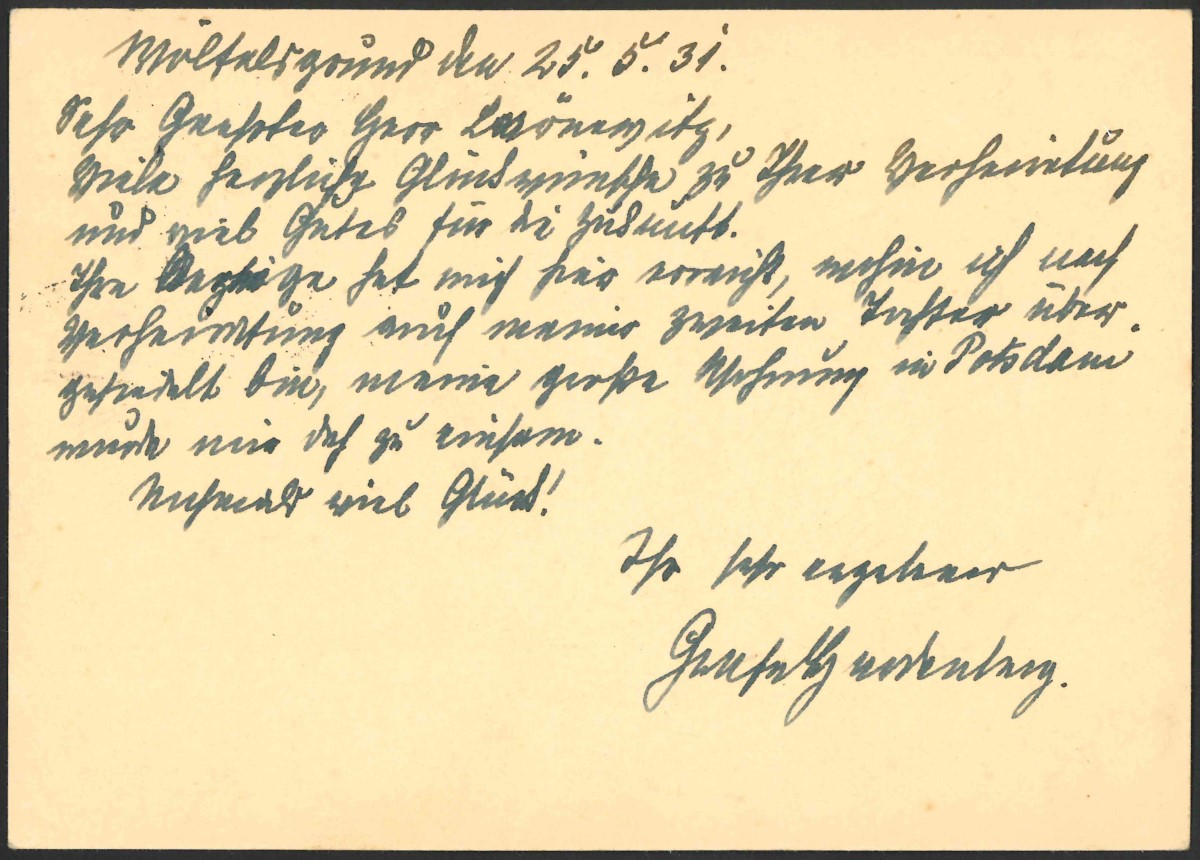 Wölfelsgrund den 25. 5. 31.
Sehr Geehrter Herr
Viele herzliche Glückwünsche zu Ihrer Verheiratung
und viel Gutes für die Zukunft.
Ihre Anzeige hat mich hier erreicht, wohin ich nach
Verheiratung auch meiner zweiten Tochter über
gesiedelt bin, meine große Wohnung in Potsdam
wurde mir doch zu einsam.
Nochmals viel Glück!
Ihr sehr ergebener
Graf Hardenberg.